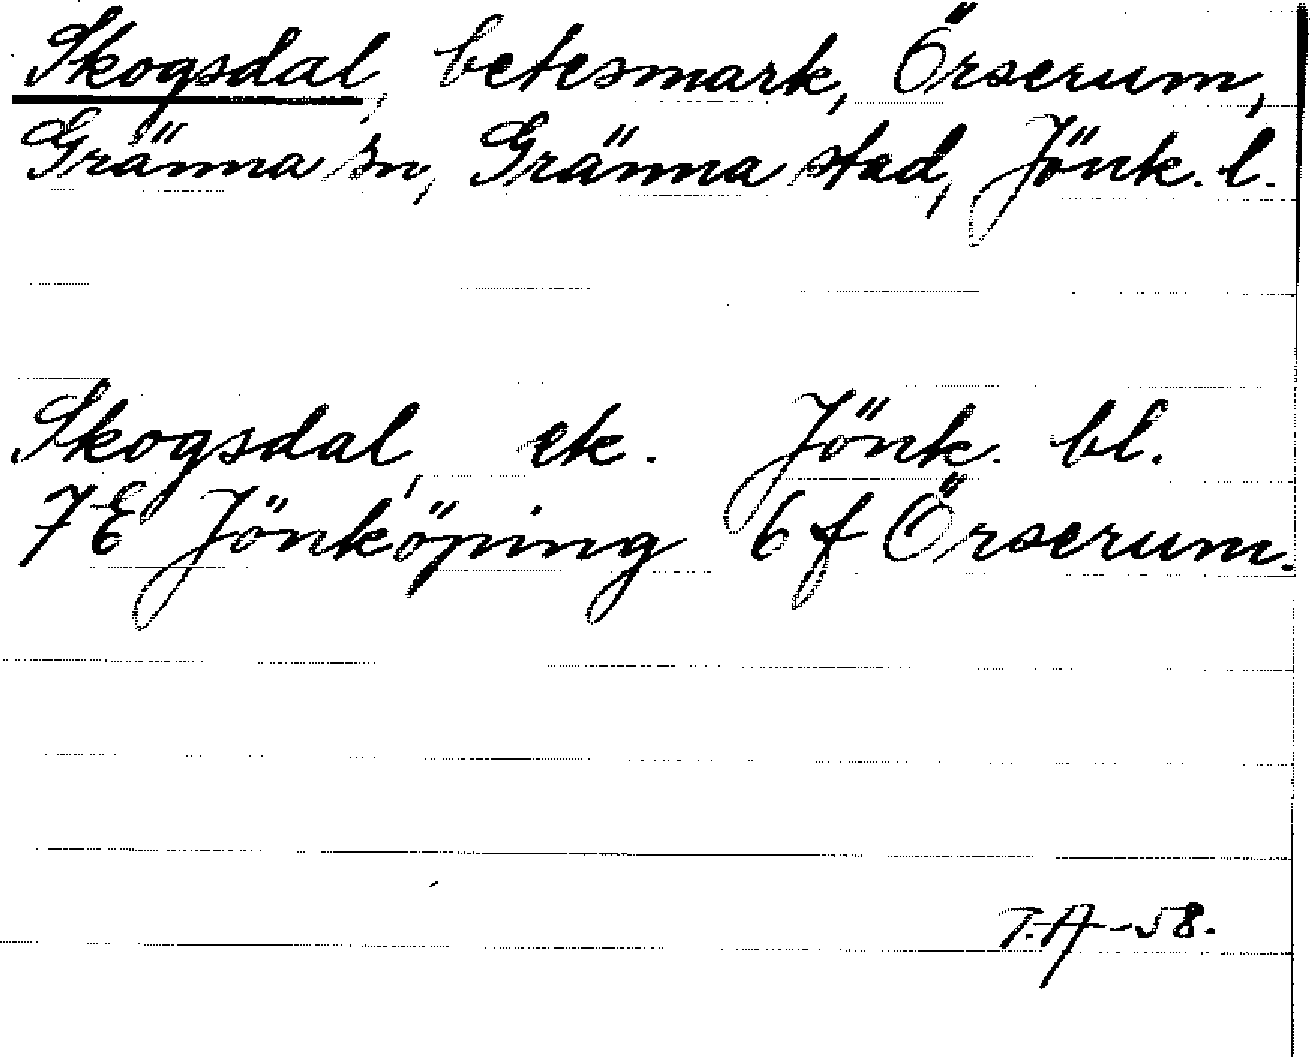 Skogsdal, betesmark, Örserum,
Gränna sn, Gränna stad, Jönk. l.
Skogsdal, ek. Jönk. bl.
7E Jönköping 6f Örserum.
T.A-58.